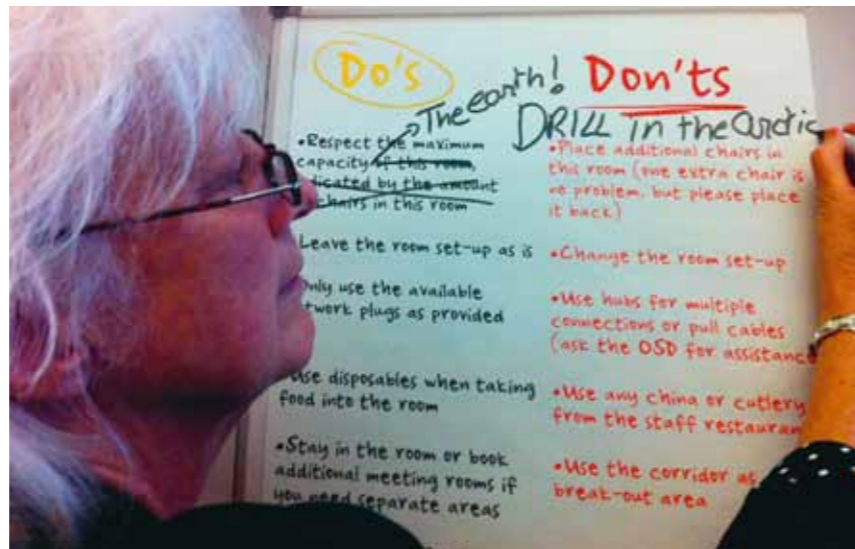 Do's
The earth!
•Respect the maximum
capacity of this room,
dicated by the amount
chairs in this room
Leave the room set-up as is
Only use the available
twork plugs as provided
Use disposables when taking
food into the room
•Stay in the room or book
additional meeting rooms if
you need separate areas
Don'ts
DRILL in the arctic
•Place additional chairs in
this room (one extra chair is
no problem, but please place
it back)
•Change the room set-up
•Use hubs for multiple
connections or pull cables
(ask the OSD for assistance
•Use any china or cutlery
from the staff restaurant
•Use the corridor as
break-out area